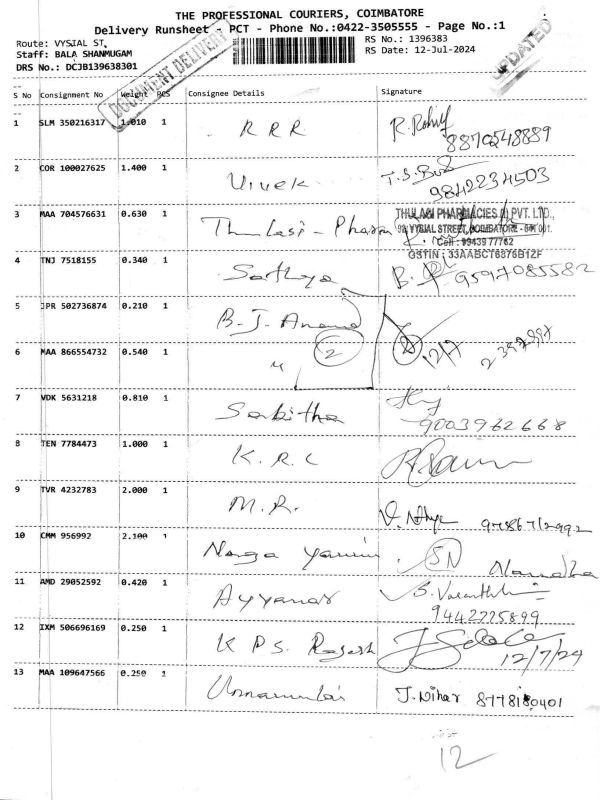 THE PROFESSIONAL COURIERS, COIMBATORE
Delivery Runsheet - PCT - Phone No.:0422-3505555 - Page No.:1
Route: VYSIAL ST, RS No.: 1396383
Staff: BALA SHANMUGAM RS Date: 12-Jul-2024
DRS No.: DCJB139638301
DOCUMENT DELIVERY
UPDATED
S No Consignment No Weight PCS Consignee Details Signature
1 SLM 350216317 1.010 1 R R R R. Rohit
8870548889
2 COR 100027625 1.400 1 Vivek T.S.
9842234503
3 MAA 704576631 0.630 1 Thulasi - Pharm THULASI PHARMACIES (I) PVT. LTD.,
VYSIAL STREET, COIMBATORE - 641 001.
Cell : 99439 77762
GSTIN : 33AABCT6876B1ZF
4 TNJ 7518155 0.340 1 Sathya B. 9597085582
5 JPR 502736874 0.210 1 B. J. Anand
2 12/7
6 MAA 866554732 0.540 1
7 VDK 5631218 0.810 1 Sabitha
9003962668
8 TEN 7784473 1.000 1 K. R. C
9 TVR 4232783 2.000 1 M. R. V. 9786712992
10 CMM 956992 2.100 1 Naga SN
11 AMD 29052592 0.420 1 Ayyanar
9442225899
12 IXM 506696169 0.250 1 K P S. Rajesh
12/7/24
13 MAA 109647566 0.250 1 J. Nihar 8778180401
12